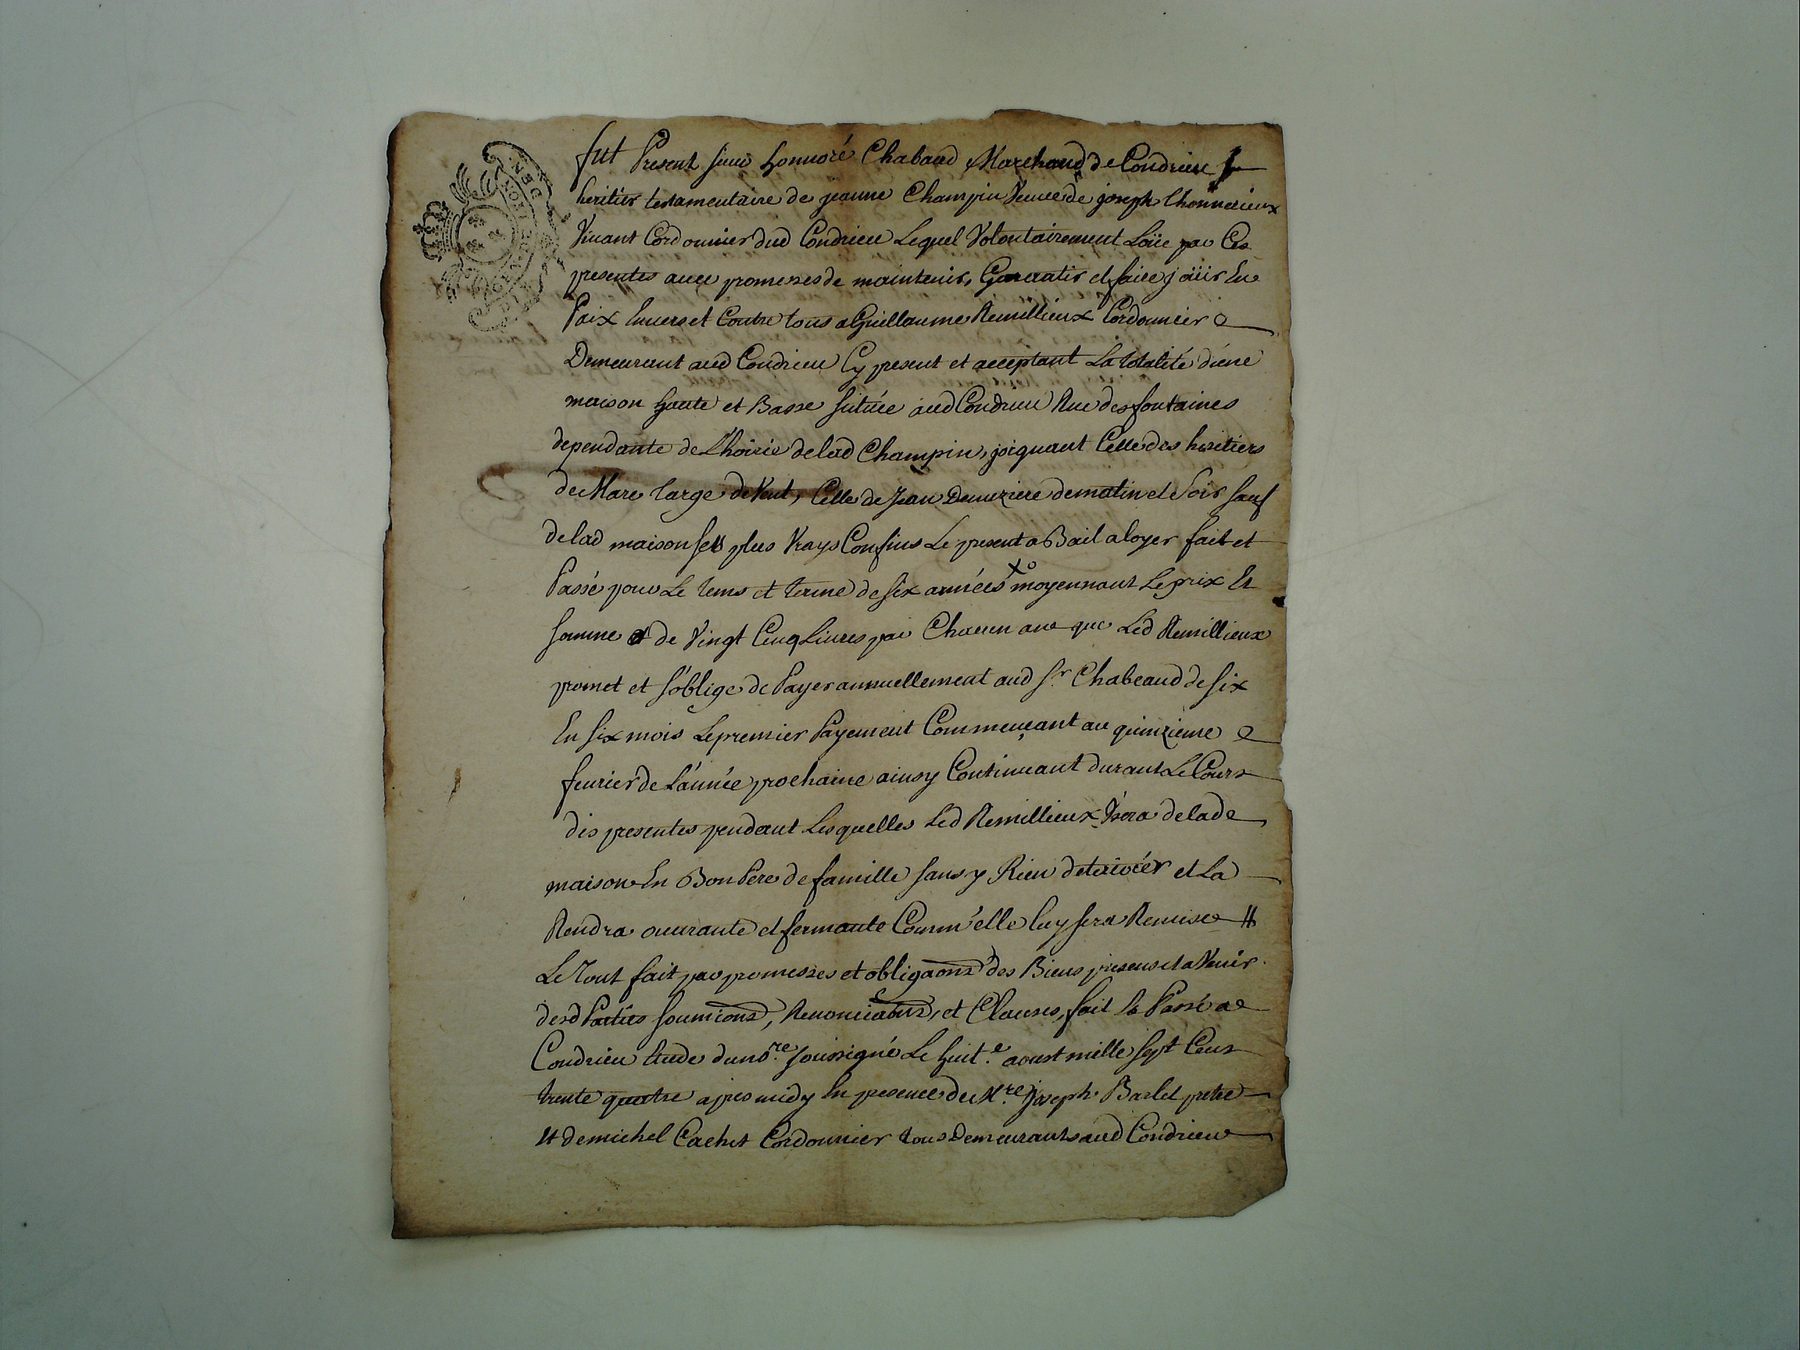 fut Present sieur honnoré Chabaud Marchand de Condrieu
heritier testamentaire de jeanne Champin Veuve de joseph Thonnerieux
Vivant Cordonnier dud Condrieu Lequel Volontairement Loüe par Ces
presentes avec promesses de maintenir, Garantir et faire joüir En
Paix Envers et Contre tous a Guillaume Remillieux Cordonnier
Demeurant aud Condrieu Cy present et acceptant La totalité d'une
maison haute et Basse Scituée aud Condrieu Rue des fontaines
dependante de L'hoirie de lad Champin, joignant Celle des heritiers
de Marc large de Vent, Celle de Jean Demeziere de matin et Soir sauf
de lad maison ses plus Vrays Confins Le present Bail a loyer fait et
Passé pour Le tems et terme de six années moyennant Le prix Et
somme de Vingt Cinq Livres par Chacun an que Led Remillieux
promet et s'oblige de Payer annuellement aud Sr Chabeaud de six
En six mois Le premier Payement Commençant au quinzieme
fevrier de L'année prochaine ainsy Continuant durant Le Cours
des presentes pendant Lesquelles Led Remillieux Usera de lade
maison En Bon Pere de famille sans y Rien deteriorér et La
Rendra ouvrante et fermante Comm'elle luy sera Remise
Le Tout fait par promesses et obligaons des Biens presens et a Venir
desd Parties soumions, Renonciaons, et Clauses, fait Passé a
Condrieu Etude du nore soussigné Le huite aoust mille sept Cens
trente quatre apres midy En presence de Mre joseph Barlet pretre
Et de michel Cachet Cordonnier tous Demeurants aud Condrieu